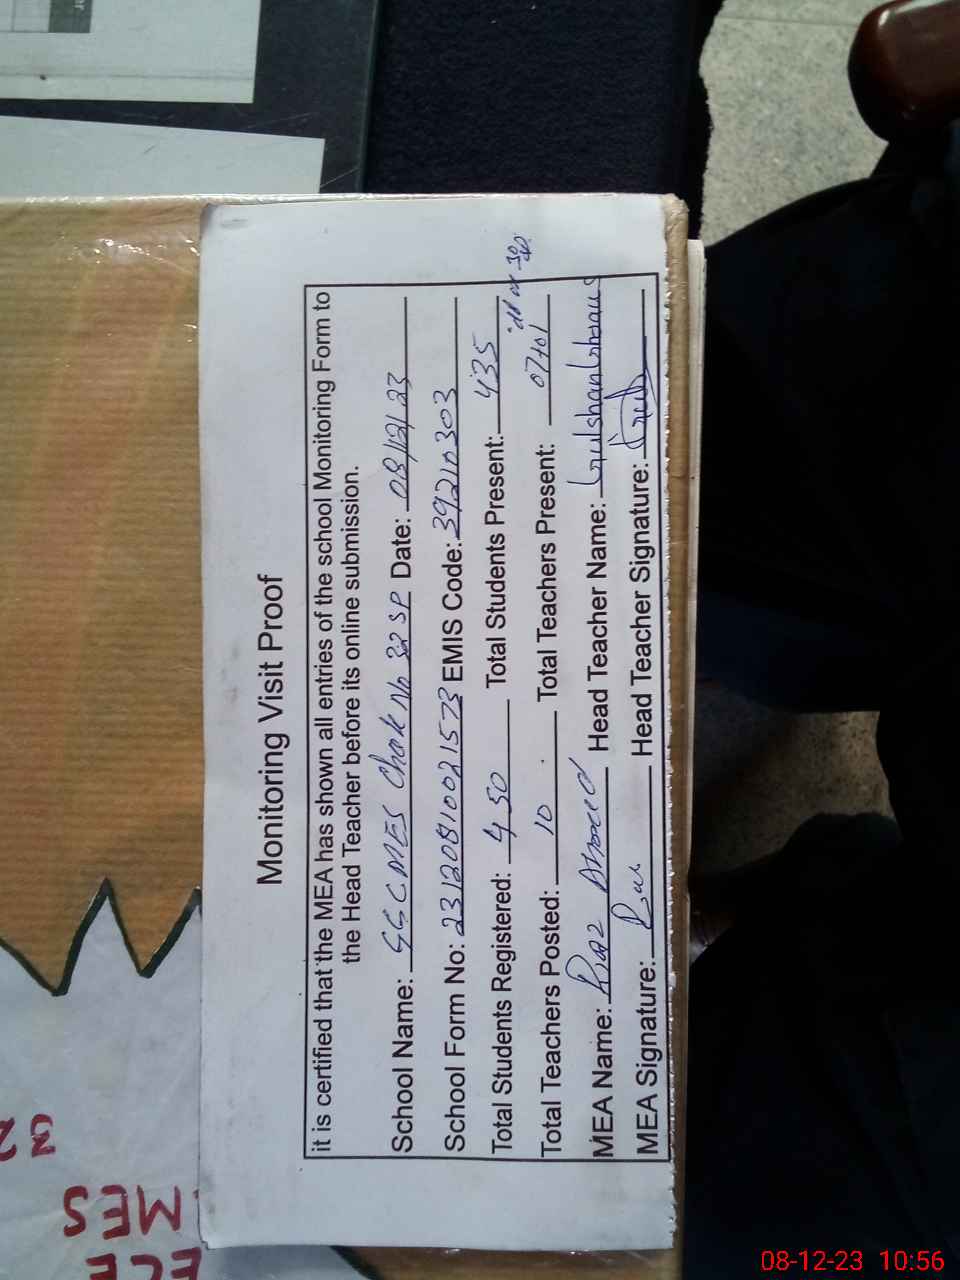 Monitoring Visit Proof
it is certified that the MEA has shown all entries of the school Monitoring Form to
the Head Teacher before its online submission.
School Name: GGCMES Chak No 32 SP Date: 08/12/23
School Form No: 23120810021573 EMIS Code: 39210303
Total Students Registered: 450 Total Students Present: 435
Total Teachers Posted: 10 Total Teachers Present: 07+01
MEA Name: Riaz Ahmed Head Teacher Name: Gulshan
MEA Signature: Head Teacher Signature:
32
MES
ECE
08-12-23 10:56